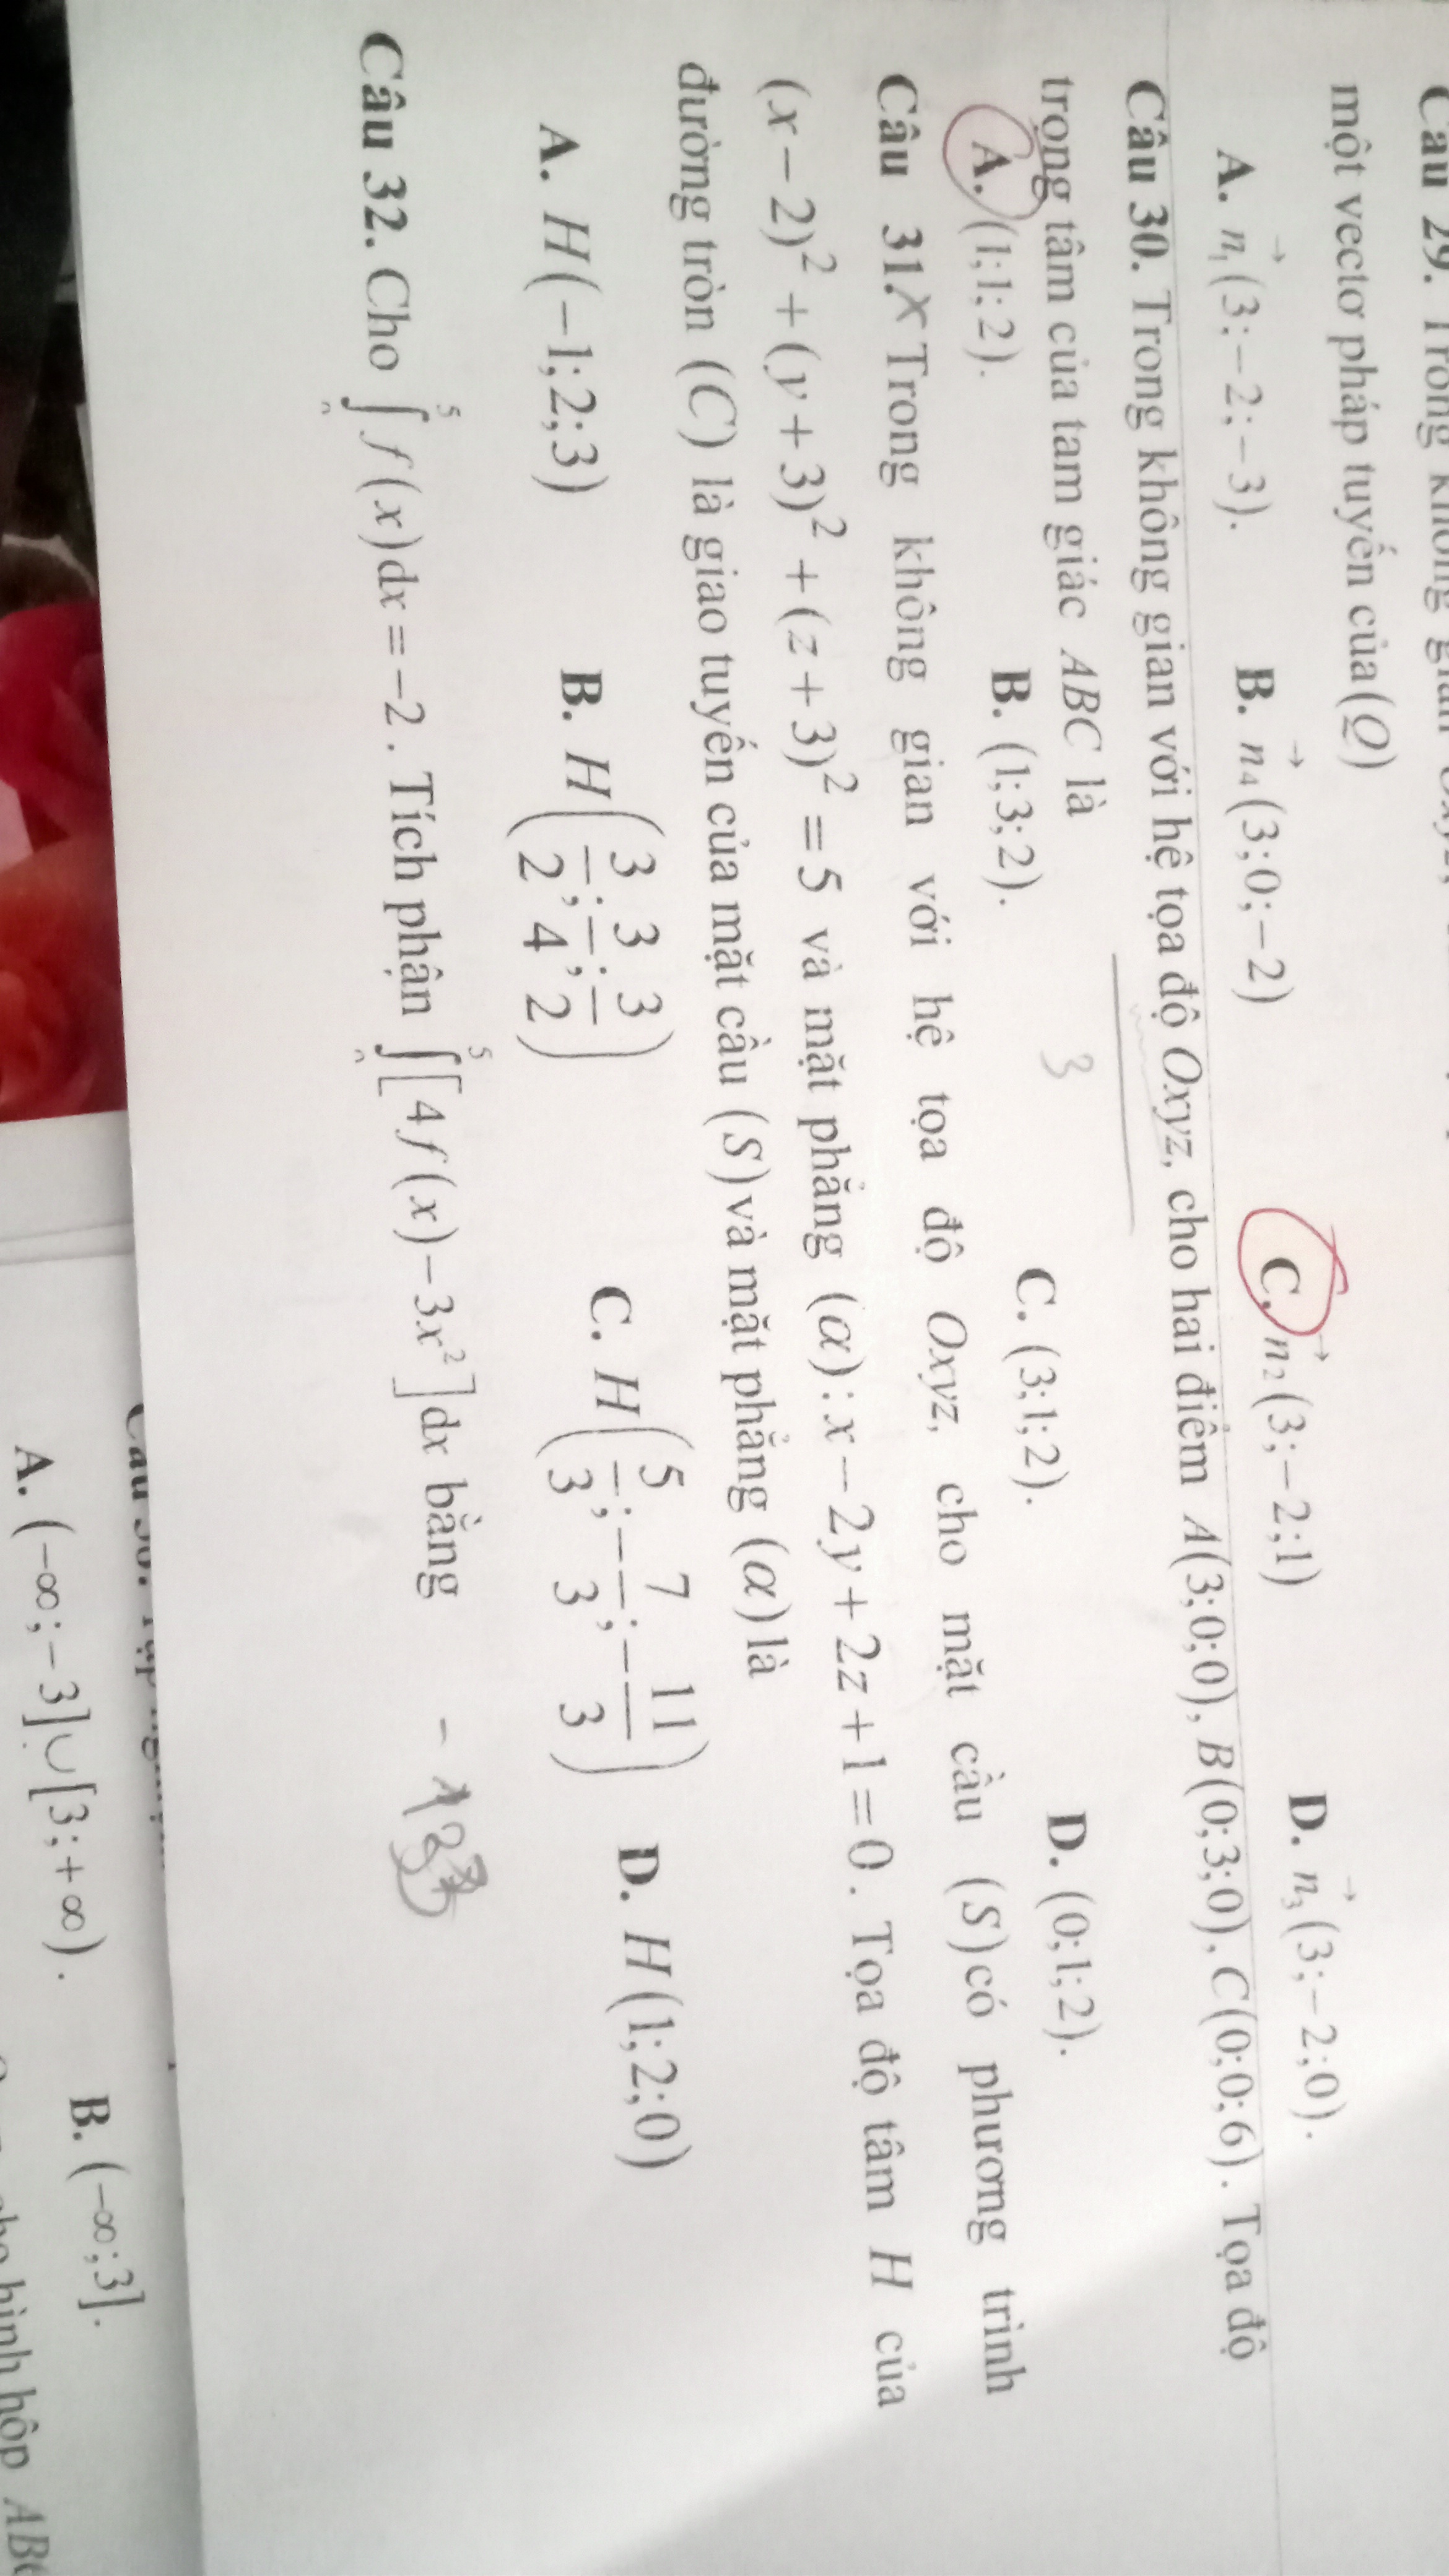 Câu 29. Trong không gian Oxyz,
một vectơ pháp tuyến của (Q)
A. n₁→(3;−2;−3). B. n₄→(3;0;−2) C. n₂→(3;−2;1) D. n₃→(3;−2;0).
Câu 30. Trong không gian với hệ tọa độ Oxyz, cho hai điểm A(3;0;0), B(0;3;0), C(0;0;6). Tọa độ
trọng tâm của tam giác ABC là
3
A. (1;1;2). B. (1;3;2). C. (3;1;2). D. (0;1;2).
Câu 31. X Trong không gian với hệ tọa độ Oxyz, cho mặt cầu (S) có phương trình
(x−2)² + (y+3)² + (z+3)² = 5 và mặt phẳng (α): x−2y+2z+1=0. Tọa độ tâm H của
đường tròn (C) là giao tuyến của mặt cầu (S) và mặt phẳng (α) là
A. H(−1;2;3) B. H(3/2;3/4;3/2) C. H(5/3;−7/3;−11/3) D. H(1;2;0)
Câu 32. Cho ∫⁵ f(x)dx=−2. Tích phân ∫⁵[4f(x)−3x²]dx bằng
A. (−∞;−3]∪[3;+∞). B. (−∞;3].
hình hộp